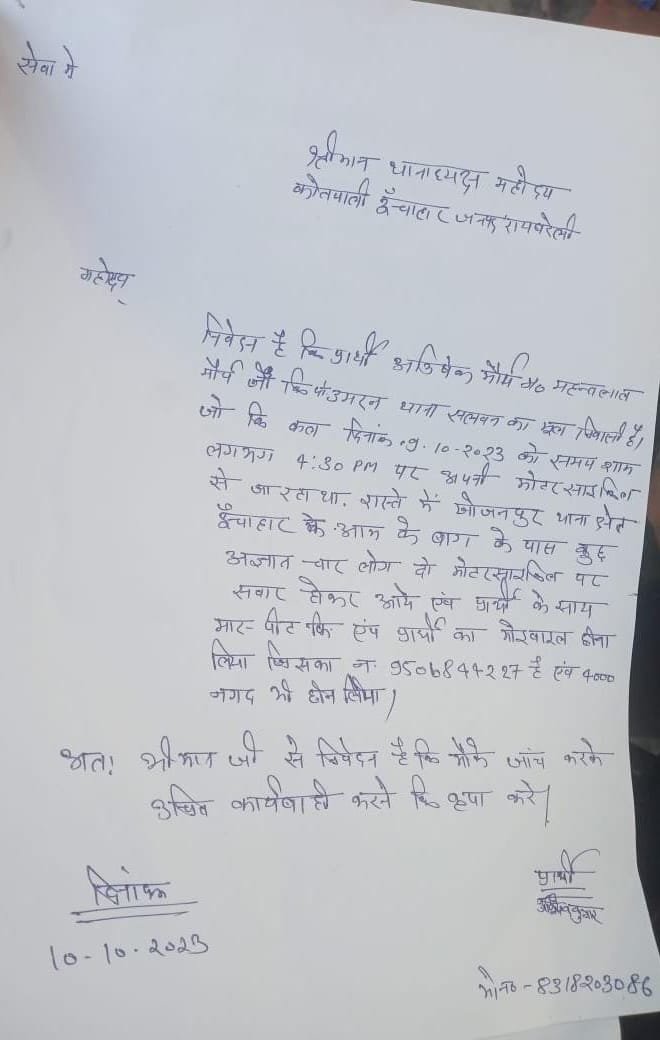 सेवा मे
श्रीमान थानाध्यक्ष महोदय
कोतवाली ऊँचाहार जनपद रायबरेली
महोदय
निवेदन है कि प्रार्थी अभिषेक मौर्य s/o महन्तलाल
मौर्य जो कि पो.उमरन थाना सलवन का मूल निवासी है।
जो कि कल दिनांक .9.10-2023 को समय शाम
लगभग 4:30 PM पर अपनी मोटरसाइकिल
से जा रहा था. रास्ते में खोजनपुर थाना क्षेत्र
ऊँचाहार के आम के बाग के पास कुछ
अज्ञात चार लोग दो मोटरसाइकिल पर
सवार होकर आये एवं प्रार्थी के साथ
मार-पीट कि एवं प्रार्थी का मोबाइल छीन
लिया जिसका न. 9506844227 है एवं 4000
नगद भी छीन लिया।
अतः श्रीमान जी से निवेदन है कि मौके जांच करके
उचित कार्यवाही करने कि कृपा करे।
दिनांक
10-10-2023
प्रार्थी
मो०न० - 8318203086